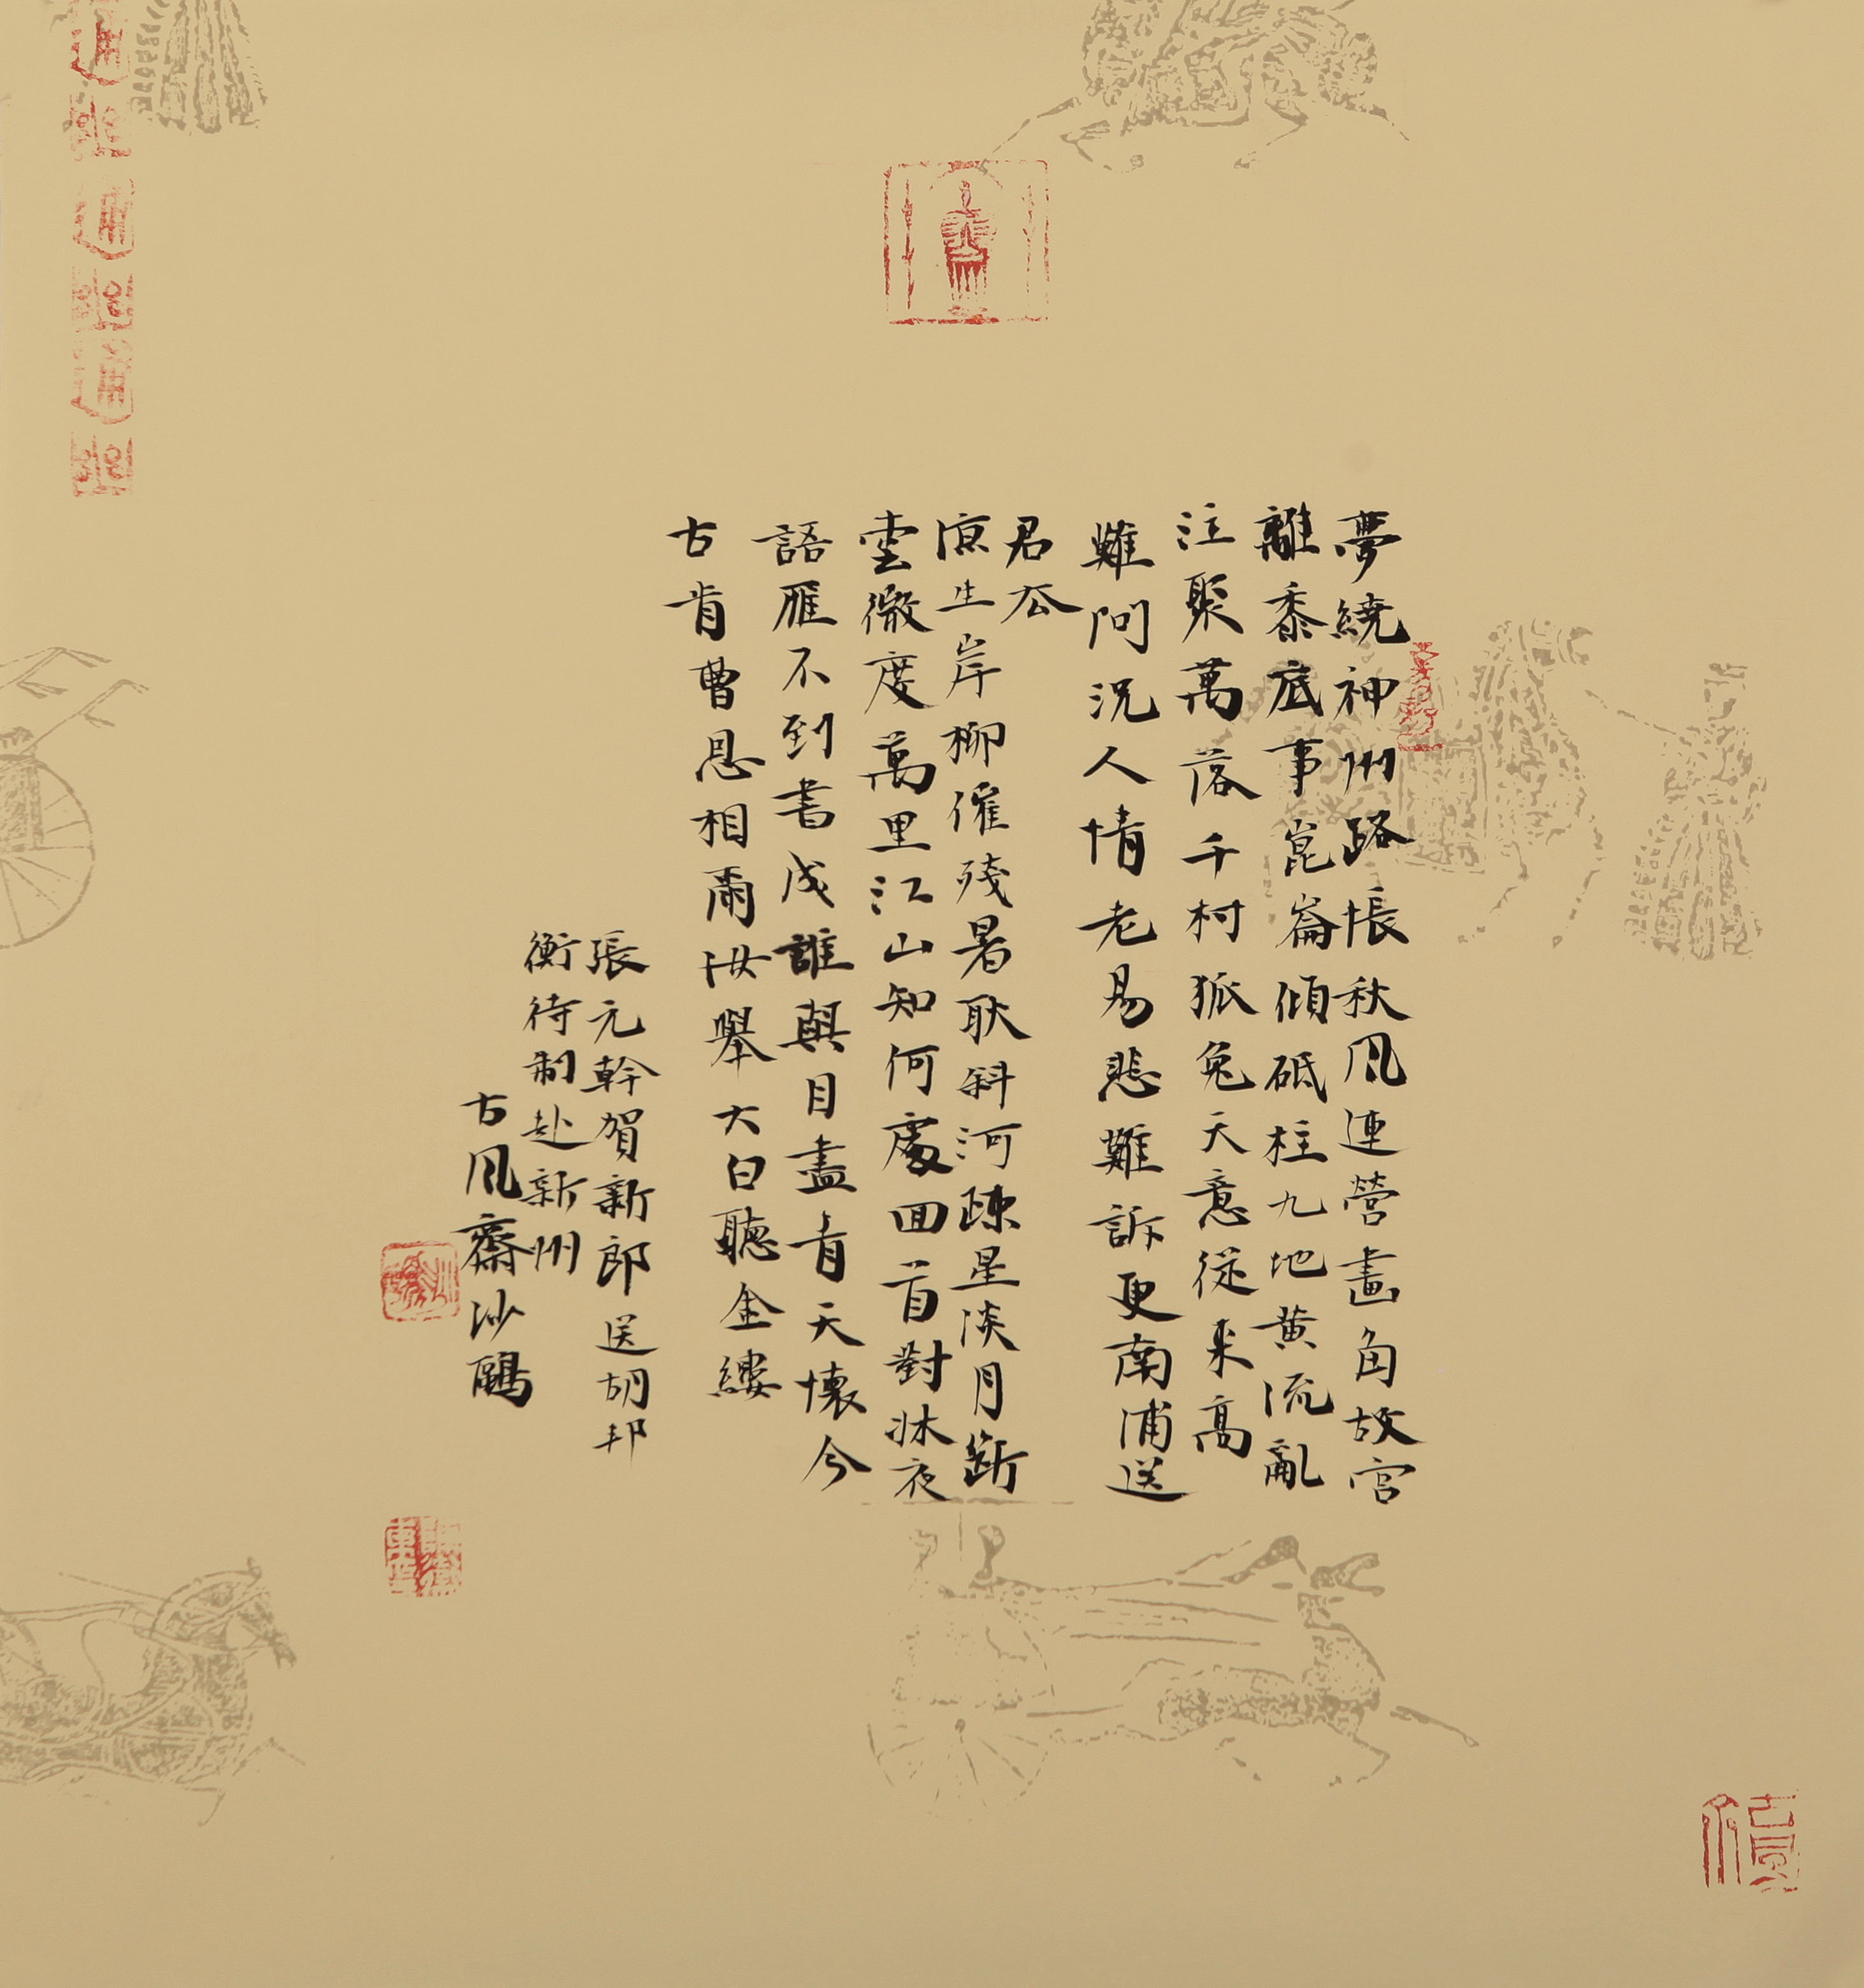 夢繞神州路悵秋風連營畫角故宮
離黍底事崑崙傾砥柱九地黄流亂
注聚萬落千村狐兔天意從来高
雖問況人情老易悲難訴更南浦送
君厺
凉生岸柳催殘暑耿斜河疎星淡月斷
雲微度萬里江山知何處回首對牀夜
語雁不到書成誰與目盡青天懷今
古肯曹恩相爾汝舉大白聽金縷
張元幹賀新郎送胡邦
衡待制赴新州
古風齋沙鷗